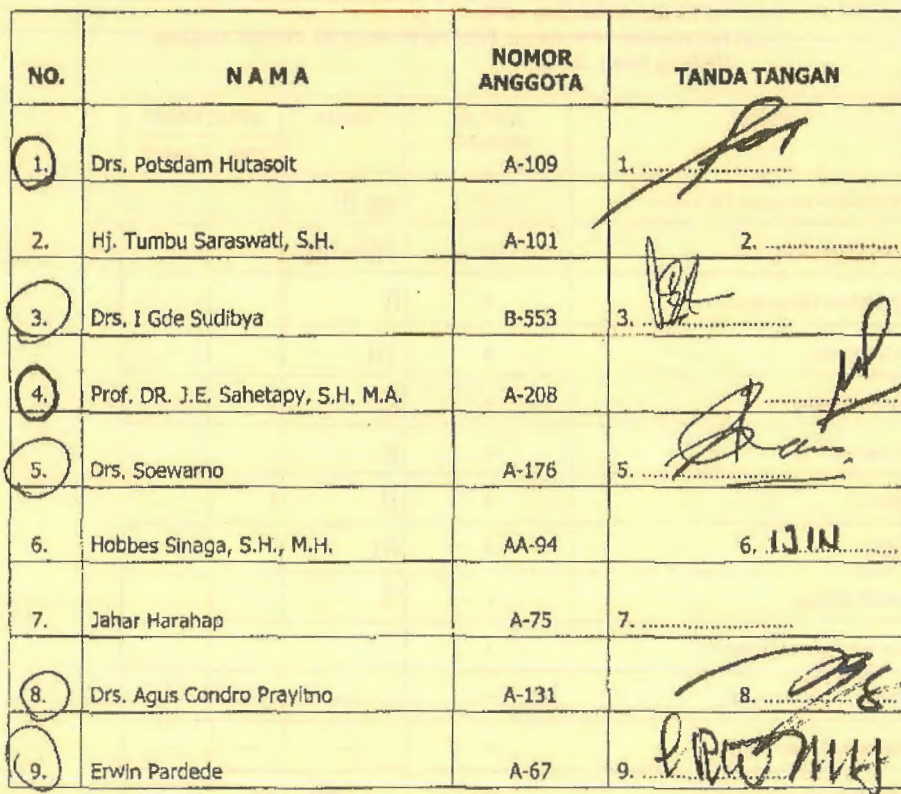 NO. NAMA NOMOR ANGGOTA TANDA TANGAN
1. Drs. Potsdam Hutasoit A-109 1. ....................
2. Hj. Tumbu Saraswati, S.H. A-101 2. ....................
3. Drs. I Gde Sudibya B-553 3. ....................
4. Prof. DR. J.E. Sahetapy, S.H. M.A. A-208 ....................
5. Drs. Soewarno A-176 5. ....................
6. Hobbes Sinaga, S.H., M.H. AA-94 6. IJIN
7. Jahar Harahap A-75 7. ....................
8. Drs. Agus Condro Prayitno A-131 8. ....................
9. Erwin Pardede A-67 9. ....................